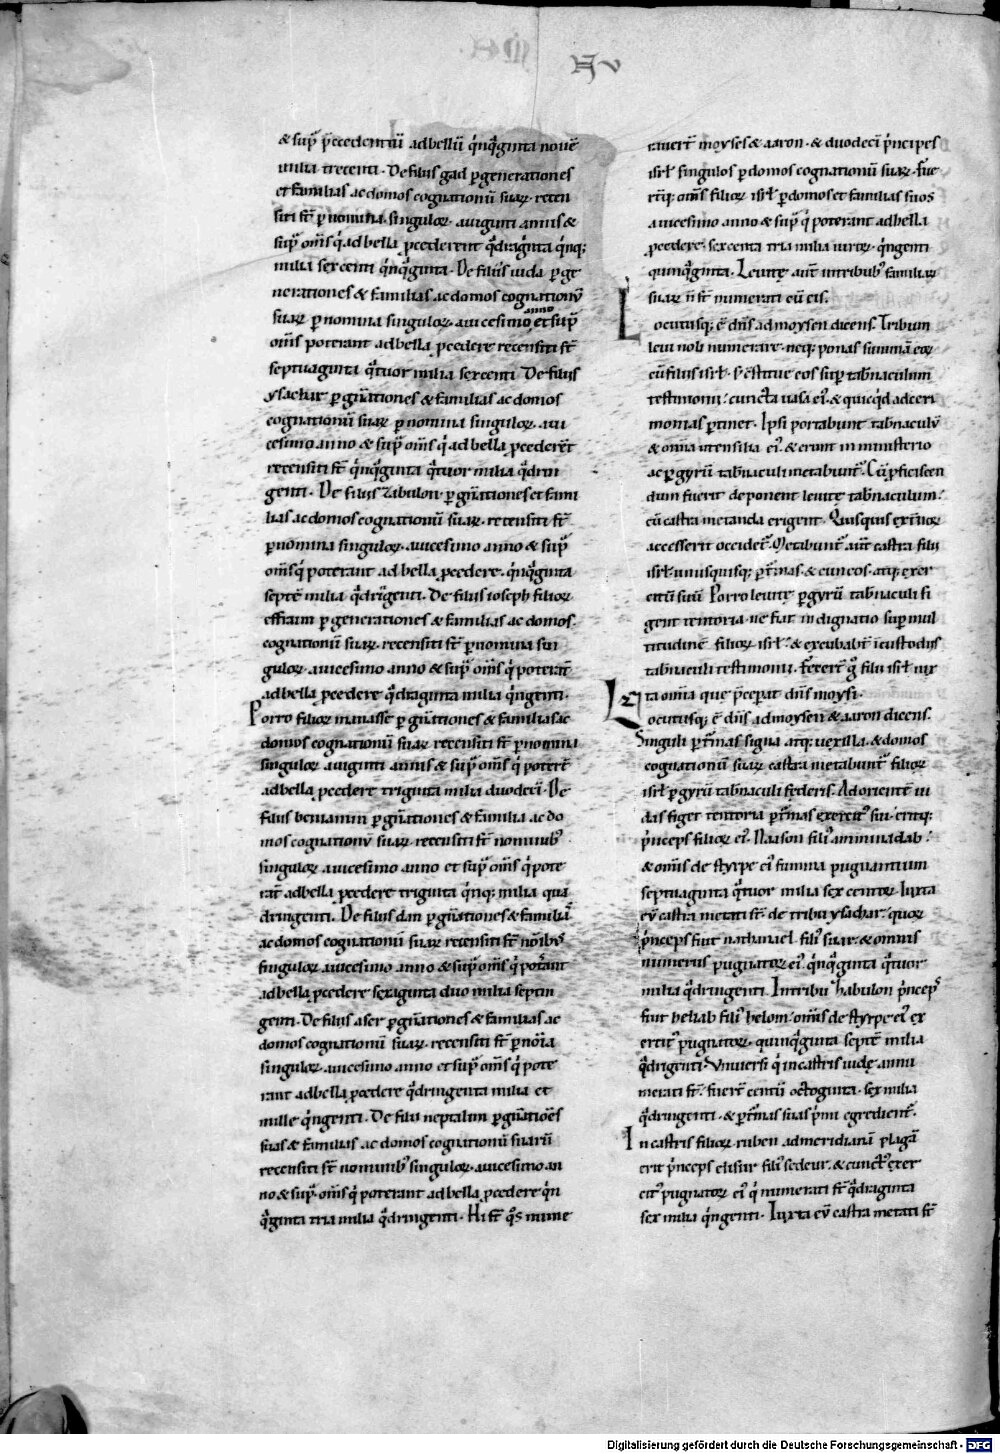 & sup̄ p̄cedentiū ad bellū q̇nq̇ginta nouē
milia trecenti. De filiis gad ꝑgenerationes
et familias ac domos cognationū suaꝝ. recen
siti st̄ ꝑ nomina singuloꝝ. a uiginti annis &
sup̄ om̄s q̇ ad bella ꝓcederent q̇draginta q̇nq;
milia sexcenti q̇nq̇ginta. De filiis iuda ꝑge
nerationes & familias ac domos cognationū
suaꝝ ꝑ nomina singuloꝝ. a uicesimo anno et sup̄
om̄s poterant ad bella ꝓcedere recensiti st̄
septuaginta q̇tuor milia sexcenti De filiis
ysachar ꝑ gn̄ationes & familias ac domos
cognationū suaꝝ ꝑ nomina singuloꝝ. a ui
cesimo anno & sup̄ om̄s q̇ ad bella ꝓcederēt
recensiti st̄ q̇nq̇ginta q̇tuor milia q̇drin
genti. De filiis zabulon ꝑ gn̄ationes et fami
lias ac domos cognationū suaꝝ. recensiti st̄
ꝑ nomina singuloꝝ. a uicesimo anno & sup̄
om̄s q̇ poterant ad bella ꝓcedere. q̇nq̇ginta
septē milia q̇dringenti. De filiis ioseph filioꝝ
effraim ꝑ generationes & familias ac domos
cognationū suaꝝ. recensiti st̄ ꝑ nomina sin
guloꝝ. a uicesimo anno & sup̄ om̄s q̇ poterāt
ad bella ꝓcedere q̇draginta milia q̇ngenti.
Porro filioꝝ manasse ꝑ gn̄ationes & familias ac
domos cognationū suaꝝ recensiti st̄ ꝑ nomina
singuloꝝ a uiginti annis & sup̄ om̄s q̇ poterāt
ad bella ꝓcedere triginta milia duodeci. De
filiis beniamin ꝑ gn̄ationes & familia ac do
mos cognationū suaꝝ. recensiti st̄ nominib;
singuloꝝ a uicesimo anno et sup̄ om̄s q̇ pote
rāt ad bella ꝓcedere triginta q̇nq; milia qua
dringenti. De filiis dan ꝑ gn̄ationes & familiā
ac domos cognationū suaꝝ recensiti st̄ noīb;
singuloꝝ a uicesimo anno & sup̄ om̄s q̇ poterant
ad bella ꝓcedere sexaginta duo milia septin
genti. De filiis aser ꝑ gn̄ationes & familias ac
domos cognationū suaꝝ. recensiti st̄ ꝑ noīa
singuloꝝ a uicesimo anno et sup̄ om̄s q̇ pote
rant ad bella ꝓcedere q̇dringenta milia et
mille q̇ngenti. De filii neptalim ꝑ gn̄atiōes
suas & familias ac domos cognationū suarū
recensiti st̄ nominib; singuloꝝ. a uicesimo an
no & sup̄. om̄s q̇ poterant ad bella ꝓcedere q̇n
q̇ginta tria milia q̇dringenti. Hi st̄ q̇s nume
rauerūt moyses & aaron. & duodeci p̄ncipes
isrl̄ singulos ꝑ domos cognationū suaꝝ. fue
rūtq; om̄s filioꝝ isrl̄ ꝑ domos et familias suos
a uicesimo anno & sup̄ q̇ poterant ad bella
ꝓcedere. sexcenta tria milia uiroꝝ. q̇ngenti
quinq̇ginta. Leuitę aūt in tribub; familiaꝝ
suaꝝ n̄ st̄ numerati cū eis.
Locutusq; ē dn̄s ad moysen dicens. Tribum
leui noli numerare. neq; ponas summā eoꝝ
cū filiis isrl̄. s; cōstitue eos sup tabn̄aculum
testimonii. cuncta uasa ei'. & quicq̇d ad ceri
monias ꝑtinet. Ipsi portabunt tabn̄aculū
& omnia utensilia ei'. & erunt in ministerio
ac ꝑ gyrū tabn̄aculi metabunt̄. Cū ꝓficiscen
dum fuerit deponent leuitę tabn̄aculum.
cū castra metanda erigent. Quisquis ext̄noꝝ
accesserit occidet̄. Metabunt̄ aūt castra filii
isrl̄ unusquisq; ꝑ t̄mas. & cuneos. atq; exer
citū suū Porro leuitę ꝑ gyrū tabn̄aculi fi
gent tentoria. ne fiat indignatio sup mul
titudinē filioꝝ isrl̄. & excubabt̄ ī custodiis
tabn̄aculi testimonii. fecerūt g̊ filii isrl̄ iux
ta omia que p̄cepat dn̄s moysi.
Locutusq; ē dn̄s ad moysen & aaron dicens.
Singuli ꝑ t̄mas signa atq; uexilla. & domos
cognationū suaꝝ castra metabunt̄ filioꝝ
isrl̄ ꝑ gyrū tabn̄aculi fęderis. Ad orientē iu
das figet tentoria ꝑ t̄mas exercit' sui. eritq;
p̄nceps filioꝝ ei'. Naason fili' aminadab.
& om̄is de styrpe ei' summa pugnantium
septuaginta q̇tuor milia sexcentoꝝ. Iuxta
eū castra metati st̄. de tribu ysachar. quoꝝ
p̄nceps fuit nathanael fili' suar. & omnis
numerus pugnatoꝝ ei'. q̇nq̇ginta q̇tuor
milia q̇dringenti. In tribu zabulon p̄nceps
fuit heliab fili' helom. om̄s de styrpe ei' ex
ercit' pugnatoꝝ. quinq̇ginta septē milia
q̇drigenti. Vniuersi q̇ in castris iudę annu
merati st̄. fuerūt centū octoginta. sex milia
q̇dringenti. & ꝑ t̄mas suas p̄mi egredient̄.
In castris filioꝝ ruben ad meridianā plagā
erit p̄nceps elisur fili' sedeur. & cunct' exer
cit' pugnatoꝝ ei' q̇ numerati st̄ q̇draginta
sex milia q̇ngenti. Iuxta eū castra metati st̄
Digitalisierung gefördert durch die Deutsche Forschungsgemeinschaft - DFG